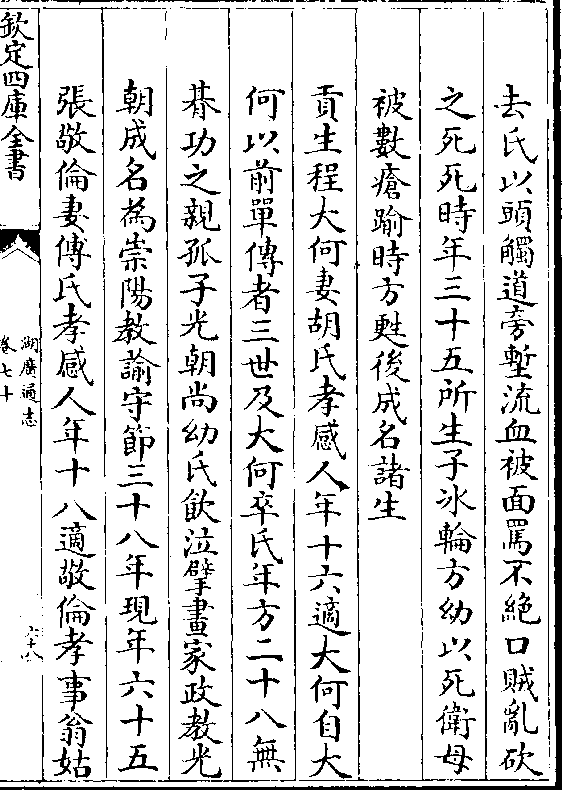 去氏以頭觸道旁塹流血被面罵不絕口賊亂砍
之死死時年三十五所生子冰輪方幼以死衛母
被數瘡踰時方甦後成名諸生
貢生程大何妻胡氏孝感人年十六適大何自大
何以前單傳者三世及大何卒氏年方二十八無
朞功之親孤子光朝尚幼氏飲泣擘畫家政教光
朝成名為崇陽教諭守節三十八年現年六十五
張敬倫妻傅氏孝感人年十八適敬倫孝事翁姑
欽定四庫全書
湖廣通志
卷七十
六十八